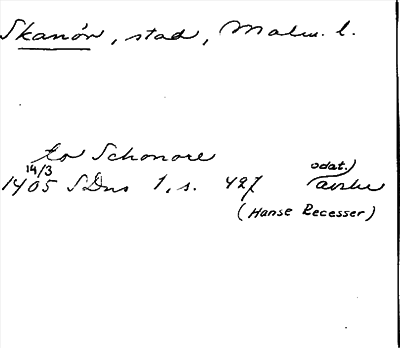 Skanör, stad, Malm. l.
to Schonore
14/3 odat.)
1405 SDns 1, s. 427 avskr
(Hanse Recesser)